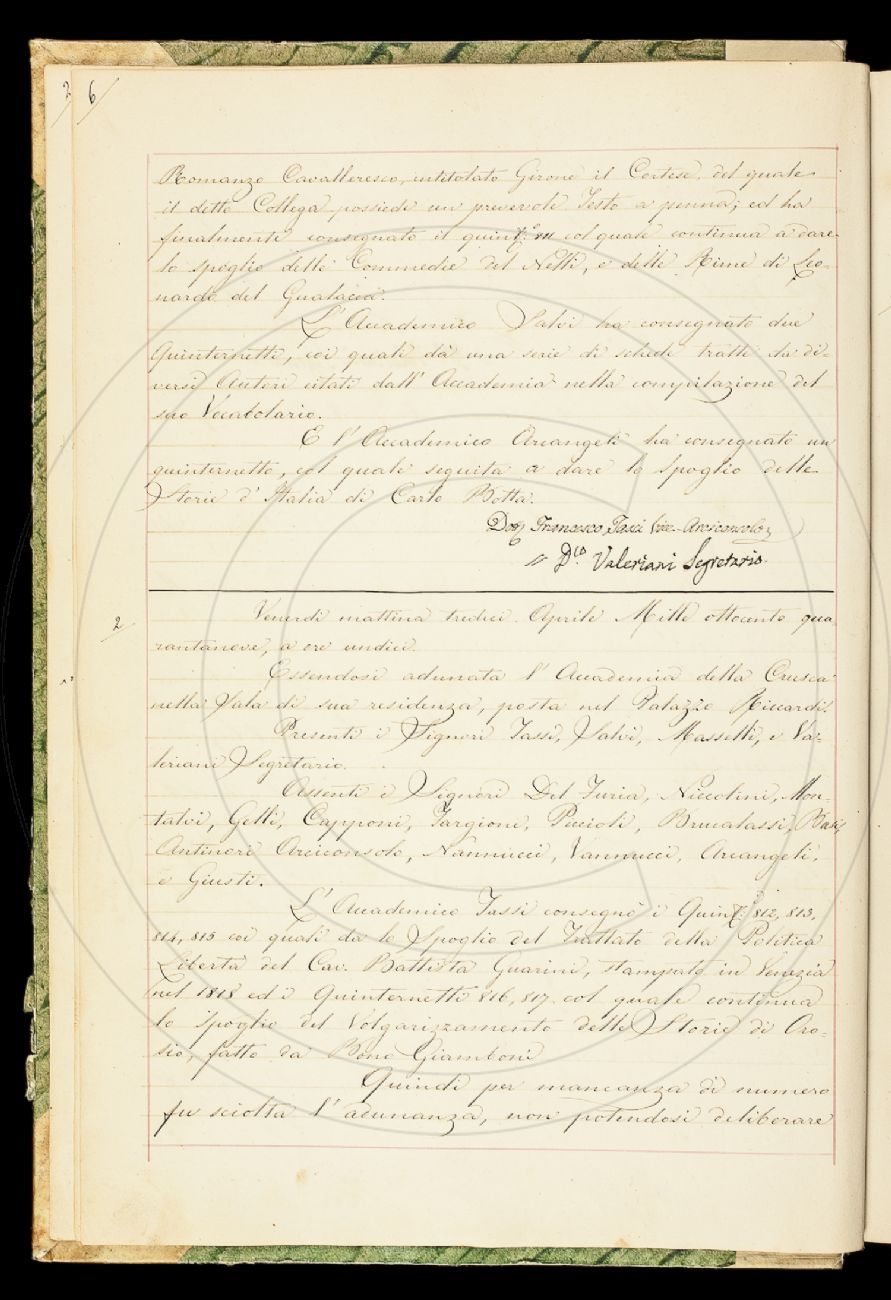 2 6
Romanzo Cavalleresco, intitolato Girone il Cortese del quale
il detto Collega possiede un prevevole Testo a penna; ed ha
finalmente consegnato il quint.º 811 col quale continua a dare
lo spoglio delle Commedie del Nelli, e delle Rime di Leo-
nardo del Gualacca.
L'Accademico Salvi ha consegnato due
Quinternetti, coi quali dà una serie di schede tratte da di-
versi Autori citati dall'Accademia nella compilazione del
suo Vocabolario.
E l'Accademico Arcangeli ha consegnato un
quinternetto, col quale seguita a dare lo spoglio delle
Storie d'Italia di Carlo Botta.
Francesco Tassi Vice-Arciconsolo
D.co Valeriani Segretario.
2
Venerdì mattina tredici Aprile Mille ottocento qua
rantanove, a ore undici.
Essendosi adunata l'Accademia della Crusca
nella Sala di sua residenza, posta nel Palazzo Riccardi.
Presenti i Signori Tassi, Salvi, Masselli, e Va-
leriani Segretario.
Assenti i Signori Del Furia, Niccolini, Mon-
talvi, Gelli, Capponi, Targioni, Puccioli, Brucalassi,
Antinori Arciconsolo, Nannucci, Vannucci, Arcangeli,
e Giusti.
L'Accademico Tassi consegnò i Quint.i 812, 813,
814, 815 coi quali dà lo Spoglio del Trattato della Politica
Libertà del Cav. Battista Guarini, stampato in Venezia
nel 1818 ed i Quinternetti 816, 817. col quale continua
lo spoglio del Volgarizzamento delle Storie di Oro-
sio, fatto da Bono Giamboni
Quindi per mancanza di numero
fu sciolta l'adunanza, non potendosi deliberare